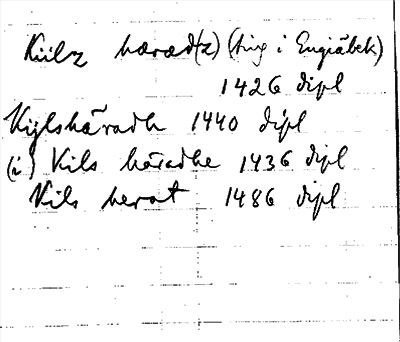 Kiilz hæræd(z) (ting i Engiäbek)
1426 dipl
Kijlshäradh 1440 dipl
(i) Kils häradhe 1436 dipl
Kils herat 1486 dipl